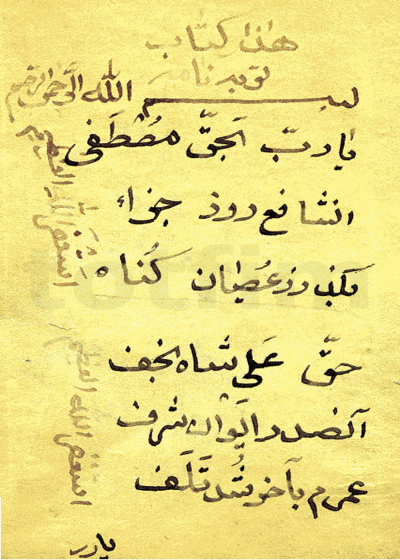 هذا كتاب
توبه نامه
بسم الله الرحمن الرحيم
یا ربّ بحقّ مصطفی
انشافع روز جزاء
عصیان کناه
حقّ علی شاه النجف
آنصدر ایوان شرف
عمرم بآخر شد تلف
یارب
استغفر الله العظيم
استغفر الله العظيم